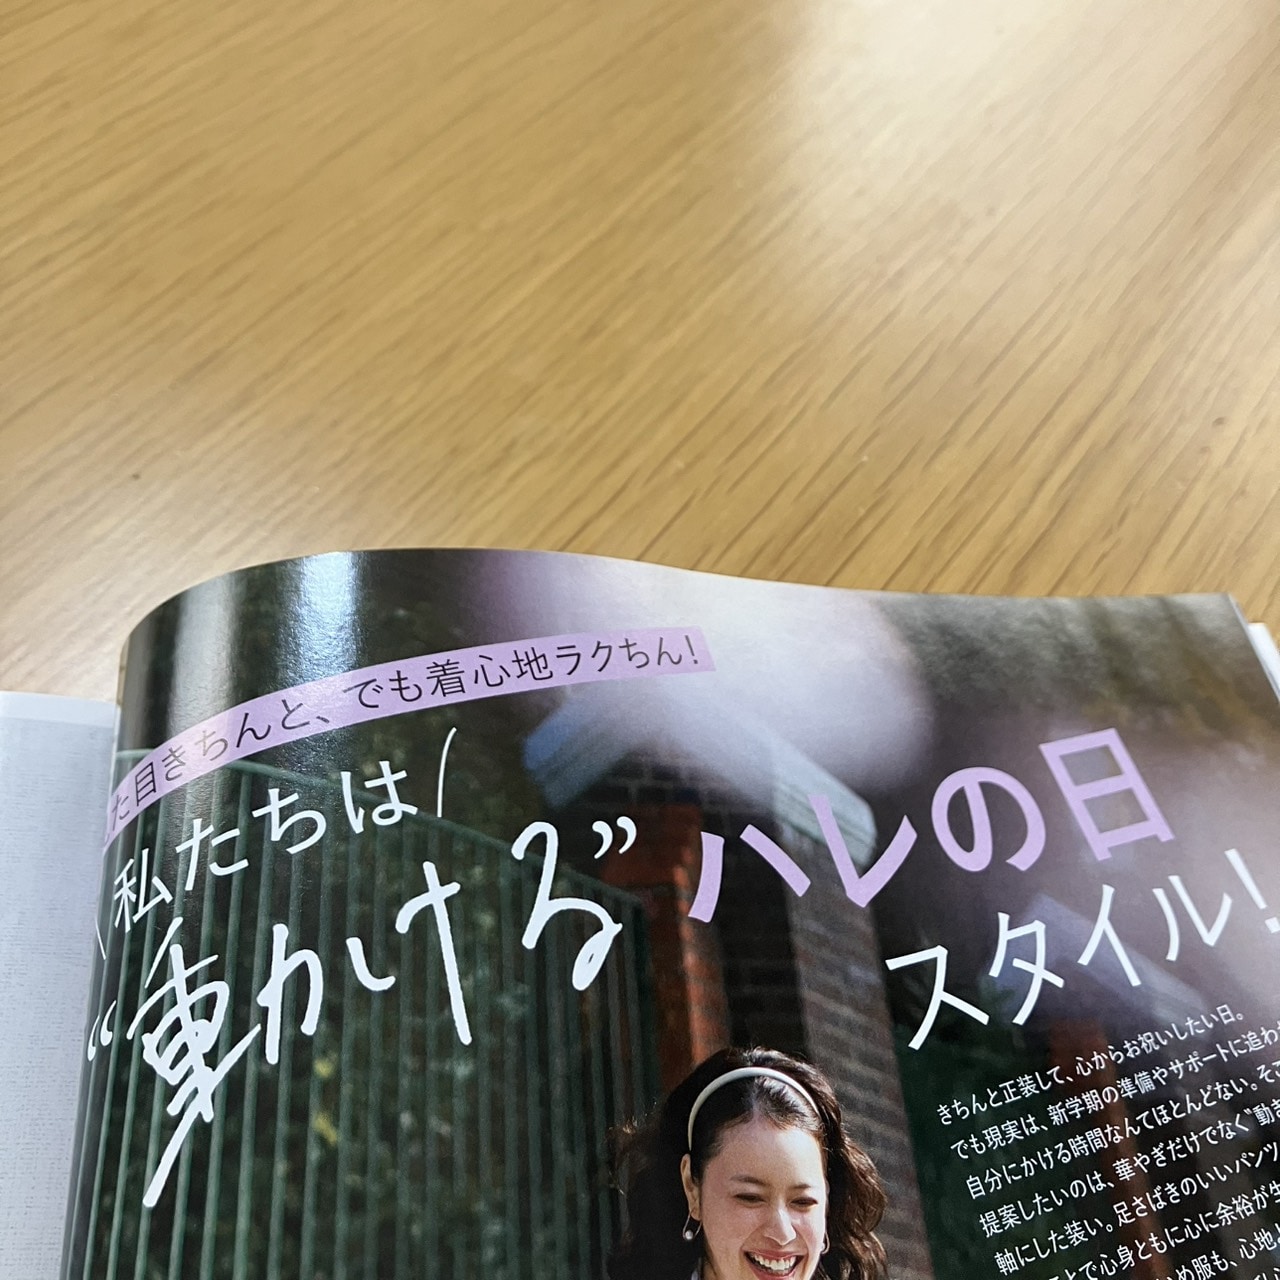 た目きちんと、でも着心地ラクちん!
私たちは
“動かける”ハレの日
スタイル!
きちんと正装して、心からお祝いしたい日。
でも現実は、新学期の準備やサポートに追わ
自分にかける時間なんてほとんどない。そこ
提案したいのは、華やぎだけでなく“動き
軸にした装い。足さばきのいいパンツ
ことで心身ともに心に余裕が生
め服も、心地よ